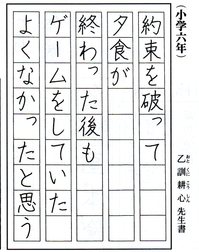 (小学六年)
約束を破って
夕食が
終わった後も
ゲームをしていた
よくなかったと思う
乙訓耕心先生書
おとくにこうしん